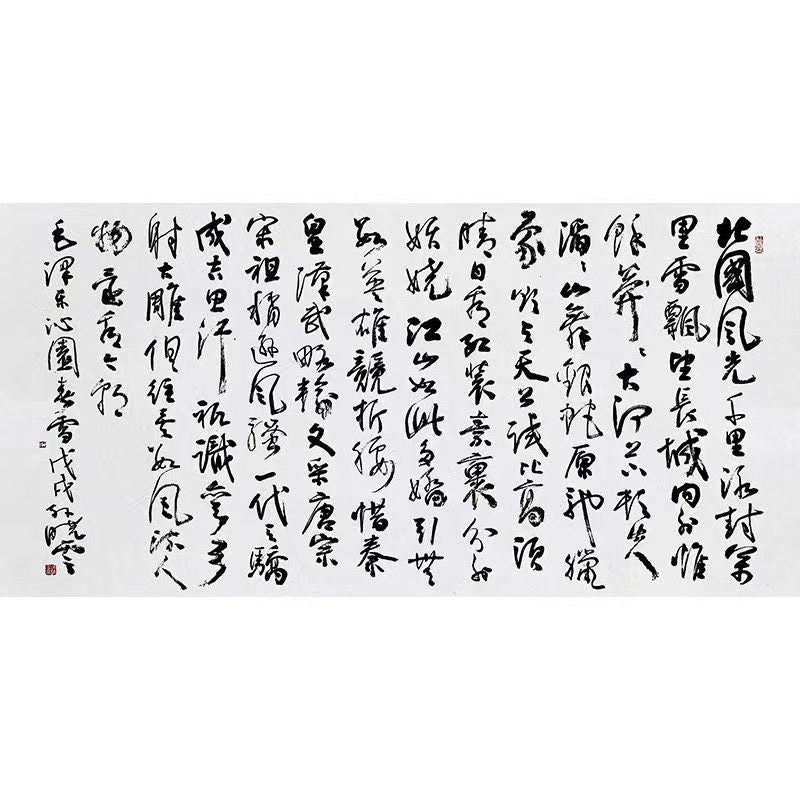 北國风光千里冰封万
里雪飄望長城内外惟
餘莽〻大河上下顿失
滔〻山舞銀蛇原馳臘
象欲与天公試比高須
晴日看红装素裹分外
妖娆江山如此多嬌引無
数英雄競折腰惜秦
皇漢武略輸文采唐宗
宋祖稍遜风骚一代天驕
成吉思汗祇識彎弓
射大雕俱往矣数风流人
物還看今朝
毛澤东沁園春雪戊戌曉雲